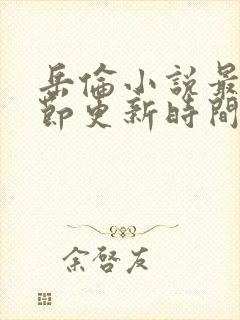 岳倫小說最
節更新時間
余啓友